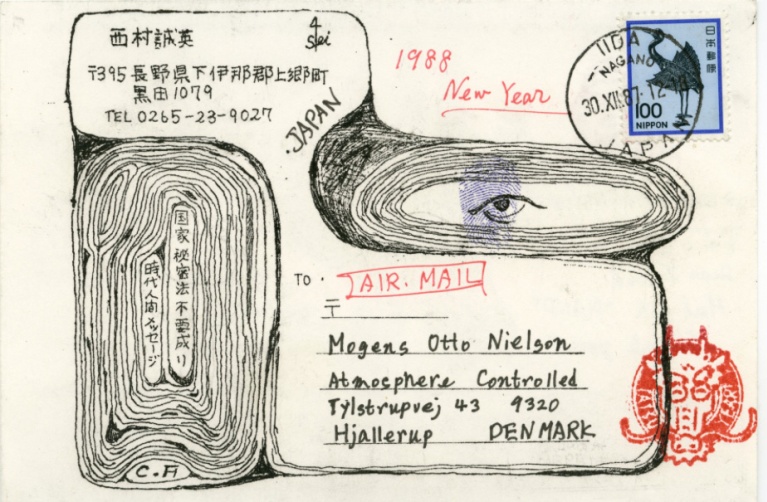 西村誠英
4
Sei
〒395 長野県下伊那郡上郷町
黒田1079
TEL 0265-23-9027
・JAPAN
1988
New Year
IIDA
NAGANO
30.XII.87.12
JAPAN
日本郵便
100
NIPPON
国家秘密法不要成り
時代人間メッセージ
C.F
TO・
AIR. MAIL
〒
Mogens Otto Nielson
Atmosphere Controlled
Tylstrupvej 43 9320
Hjallerup DENMARK